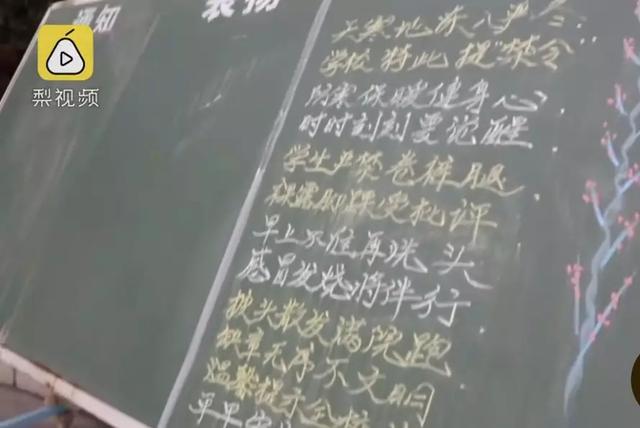 梨视频
通知
表扬
天寒地冻入严冬:
学校特此提"禁令"
防寒保暖健身心
时时刻刻要说醒
学生严禁卷裤腿
裸露脚踝受批评
早上不准再洗头
感冒发烧将伴行
披头散发满院跑
秩章无序不文明
温馨提示全校
早早